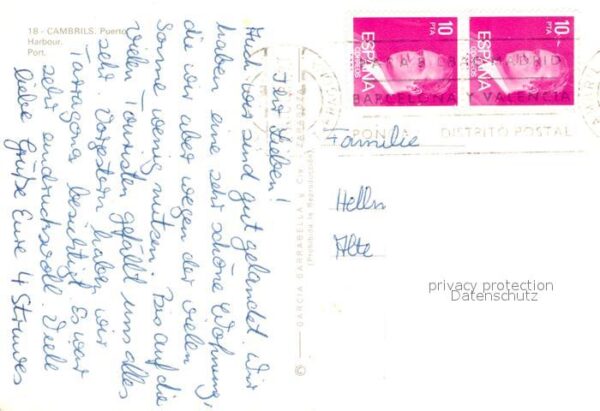 18 - CAMBRILS. Puerto
Harbour.
Port.
Ihr Lieben!
Auch wir sind gut gelandet. Wir
haben eine sehr schöne Wohnung,
die wir aber wegen der vielen
Sonne wenig nutzen. Bis auf die
vielen Touristen gefällt uns alles
sehr. Vorgestern haben wir
Tarragona besichtigt. Es war
sehr eindrucksvoll. Viele
liebe Grüße Eure 4
GARCIA GARRABELLA y Cía. - ZARAGOZA
(Prohibida la Reproducción)
10 PTA
ESPAÑA
CORREOS
10 PTA
ESPAÑA
CORREOS
MADRID
BARCELONA Y VALENCIA
PONGA DISTRITO POSTAL
Familie
Helln
Alte
privacy protection
Datenschutz